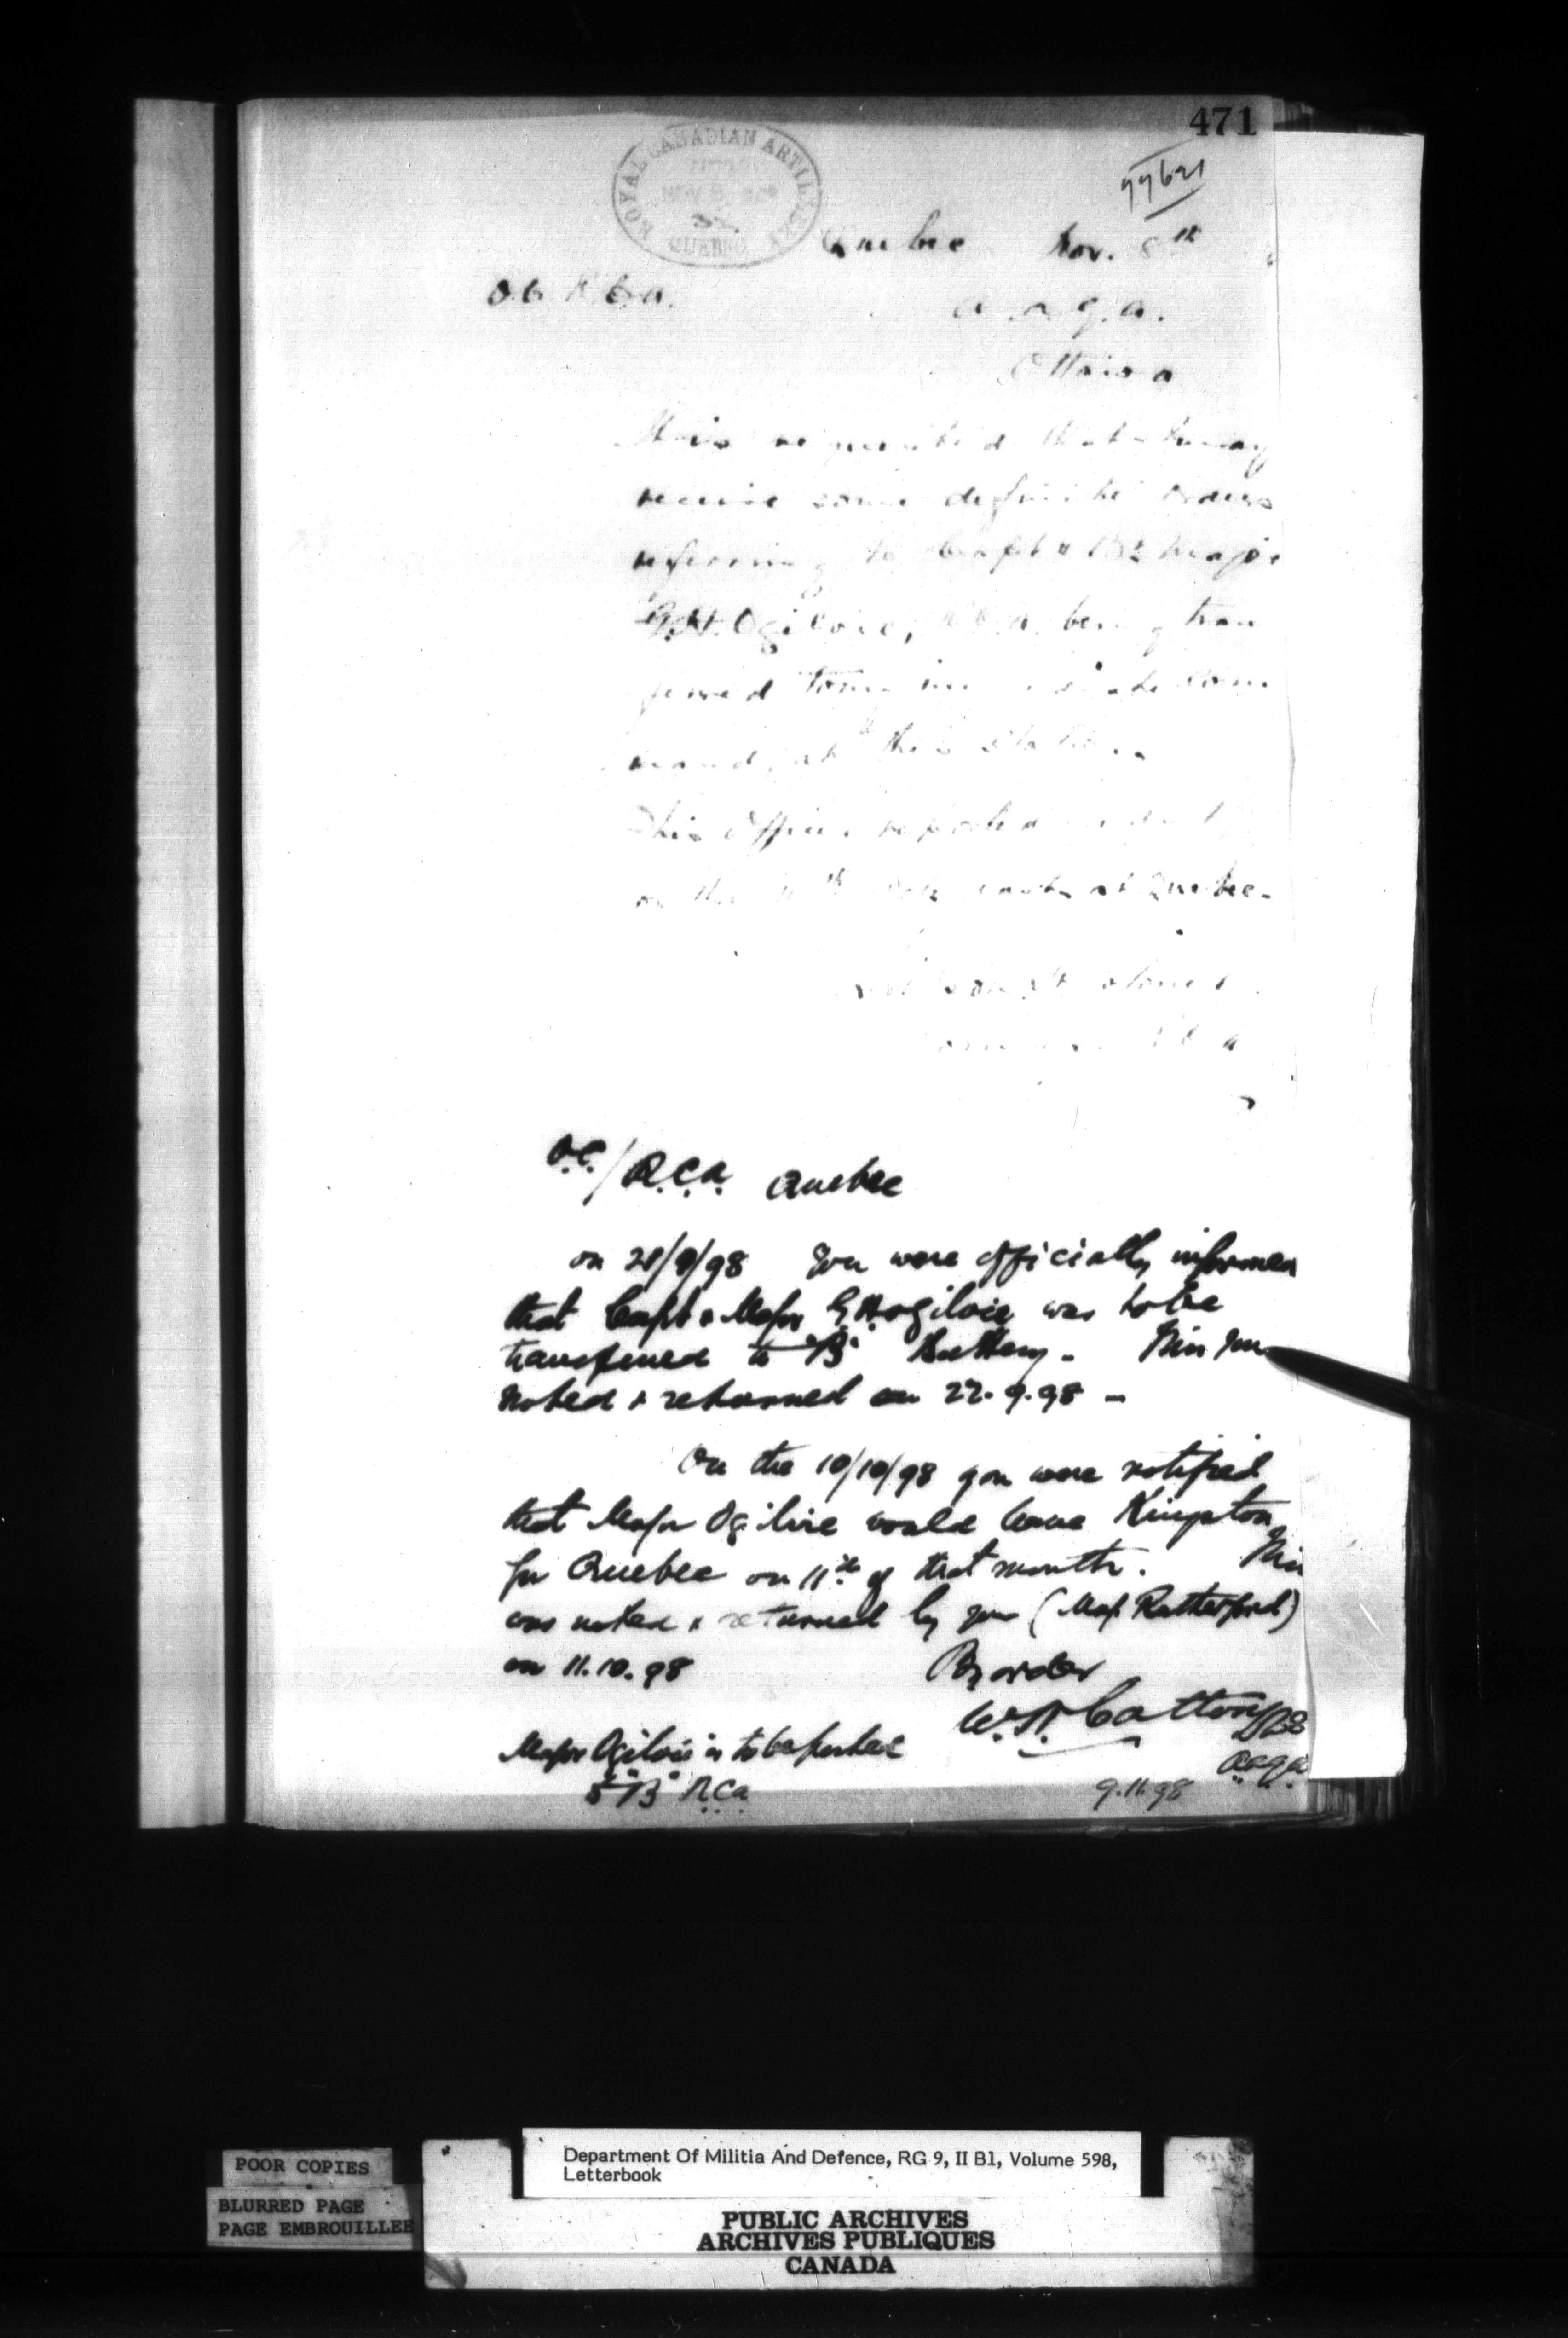 471
99621
ROYAL CANADIAN ARTILLERY
NOV 8
QUEBEC
Quebec Nov. 8th
O.C. R.C.A.
A.A.G.A.
Ottawa
It is requested that I may
receive some definite orders
referring to Capt & Bt Major
G.H. Ogilvie, R.C.A. being trans
ferred to my immediate Com
mand, at this Station.
This Officer reported
on the at Quebec.
Lt Colonel
R.C.A
O.C./R.C.A. Quebec
on 21/9/98 You were officially informed
that Capt & Major G H Ogilvie was to be
transferred to "B" Battery. This you
noted & returned on 22.9.98 -
On the 10/10/98 you were notified
that Major Ogilvie would leave Kingston
for Quebec on 11th of that month. This
was noted & returned by you (Maj. Rutherford)
on 11.10.98
By order
W.H. Cotton
Major Ogilvie is to be posted
to "B" R.C.A
A.A.G.A.
9.11.98
POOR COPIES
BLURRED PAGE
PAGE EMBROUILLEE
Department Of Militia And Defence, RG 9, II B1, Volume 598,
Letterbook
PUBLIC ARCHIVES
ARCHIVES PUBLIQUES
CANADA